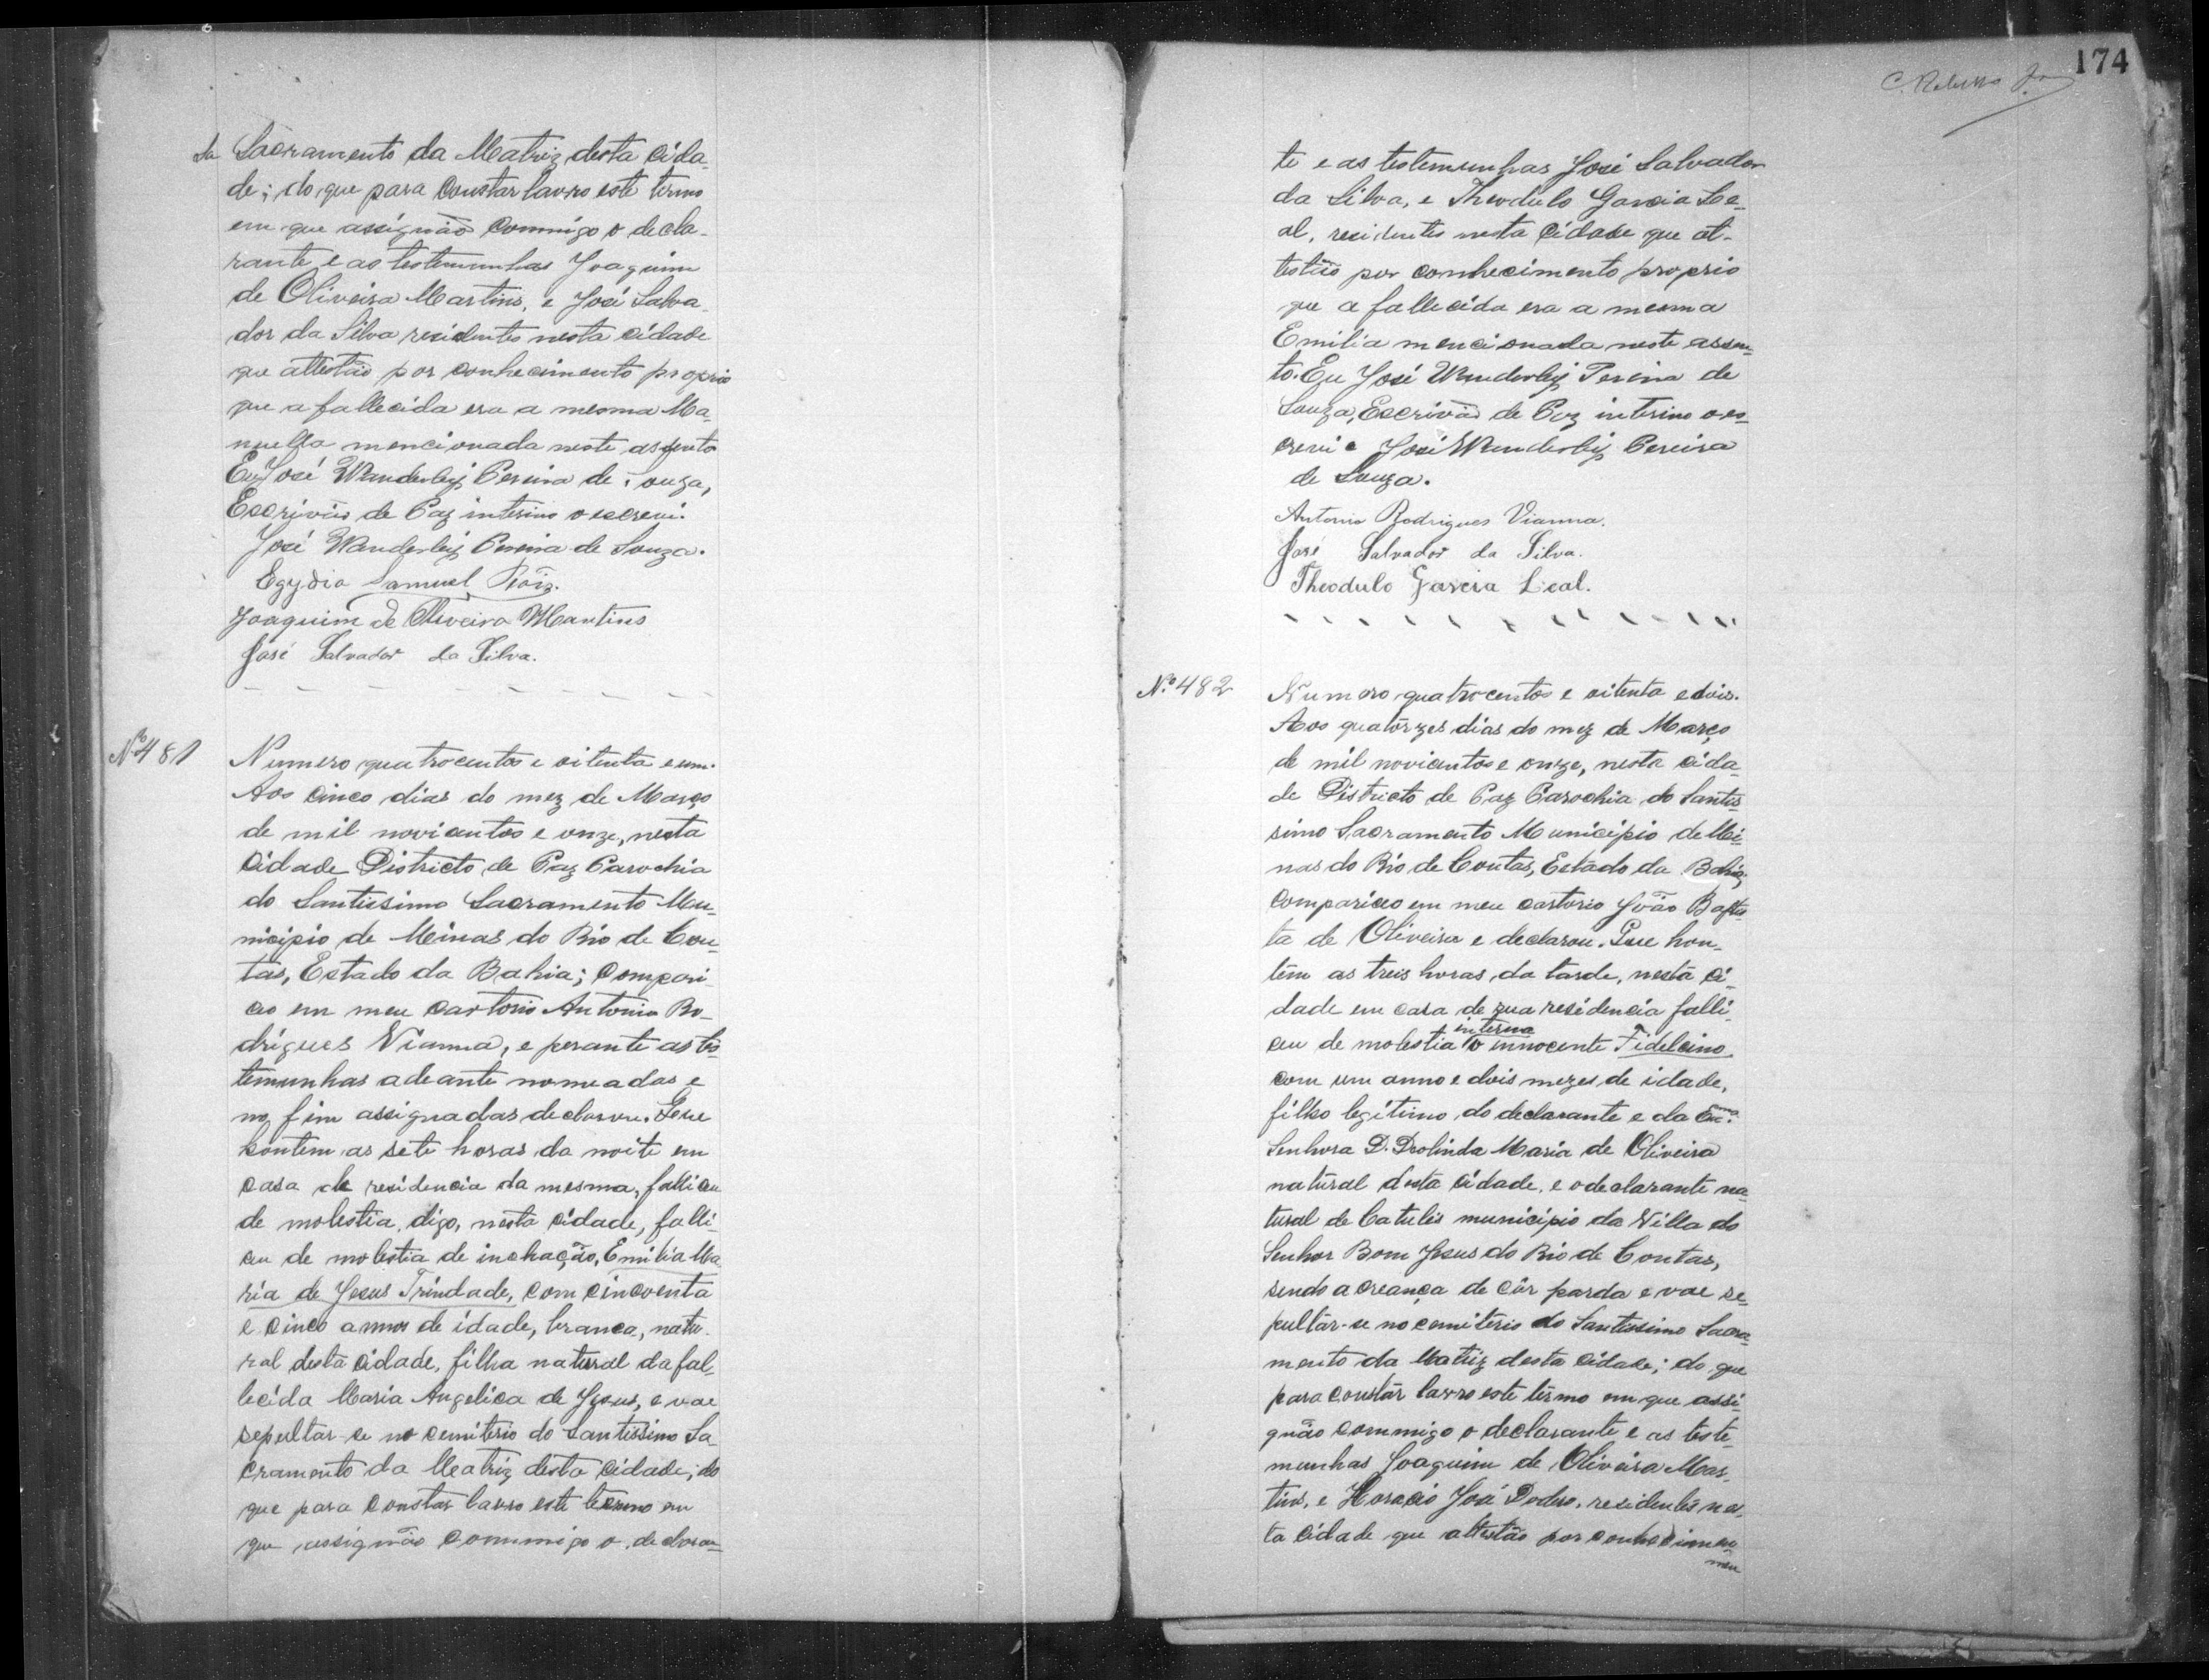 Sa Sacramento da Matriz desta Cida-
de; do que para Constar lavro este termo
em que assignão Commigo o decla-
rante e as testemunhas Joaquim
de Oliveira Martins, e José Salva-
dor da Silva residentes nesta cidade
que attestão por conhecimento proprio
que a fallecida era a mesma Ma-
nuella mencionada neste assento
Eu José Wanderley Pereira de Souza,
Escrivão de Paz interino o escrevi.
José Wanderley Pereira de Souza.
Egydio Samuel
Joaquim de Oliveira Martins
José Salvador da Silva.
Nº 481 Numero quatrocentos e oitenta e um.
Aos Cinco dias do mez de Março
de mil novicentos e onze, nesta
Cidade Districto de Paz Parochia
do Santissimo Sacramento Mu-
nicipio de Minas do Rio de Con-
tas, Estado da Bahia; Compari-
ceo em meu Cartorio Antonio Ro-
drigues Vianna, e perante as tes-
temunhas adeante nomeadas e
no fim assignadas declarou. Que
hontem as sete horas da noite em
casa de residencia da mesma, falliceu
de molestia, digo, nesta cidade, falli-
ceu de molestia de inchação, Emilia Ma-
ria de Jesus Trindade, com cincoenta
e cinco annos de idade, branca, natu-
ral desta cidade, filha natural da fal-
lecida Maria Angelica de Jesus, e vae
sepultar-se no cemiterio do Santissimo Sa-
cramento da Matriz desta Cidade; do
que para Constar lavro este termo em
que assignão Commigo o declaran-
174
te e as testemunhas José Salvador
da Silva, e Theodulo Garcia Le-
al, residentes nesta Cidade que at-
testão por conhecimento proprio
que a fallecida era a mesma
Emilia mencionada neste assen-
to. Eu José Wanderley Pereira de
Souza, Escrivão de Paz interino o es-
crevi. José Wanderley Pereira
de Souza.
Antonio Rodrigues Vianna.
José Salvador da Silva.
Theodulo Garcia Leal.
Nº 482 Numero quatrocentos e oitenta e dois.
Aos quatorzes dias do mez de Março
de mil novicentos e onze, nesta cida-
de Districto de Paz Parochia do Santis-
simo Sacramento Municipio de Mi-
nas do Rio de Contas, Estado da Bahia,
Compariceo em meu cartorio João Baptis-
ta de Oliveira e declarou. Que hon-
tem as treis horas da tarde, nesta ci-
dade em casa de zua residencia falli-
ceu de molestia interna o innocente Fidelcino
com um anno e dois mezes de idade,
filho legitimo do declarante e da Exma.
Senhora D. Drolinda Maria de Oliveira
natural desta Cidade, e o declarante na-
tural de Catulés municipio da Villa do
Senhor Bom Jesus do Rio de Contas,
sendo a creança de côr parda e vae se-
pultar-se no cemiterio do Santissimo Sacra-
mento da Matriz desta cidade; do que
para Constar lavro este termo em que assi-
gnão commigo o declarante e as teste-
munhas Joaquim de Oliveira Mar-
tins, e Horacio José residentes nes-
ta cidade que attestão por conhecimen-